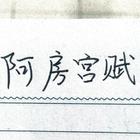 阿房宫赋